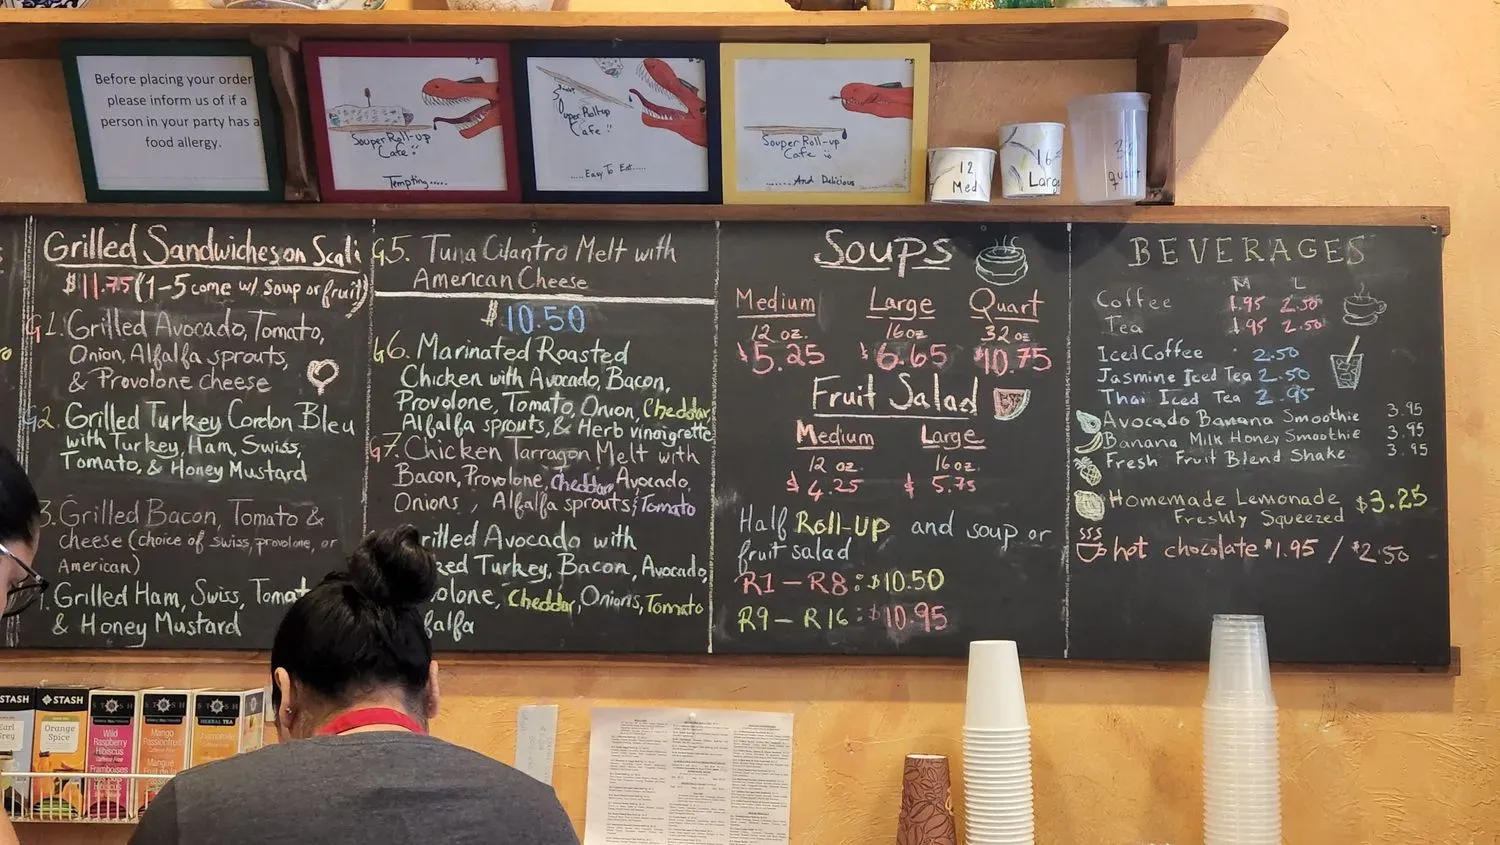 Before placing your order
please inform us of if a
person in your party has a
food allergy.
Souper Roll-up
Cafe
Tempting.....
Souper Roll-up
Cafe
.....Easy To Eat.....
Souper Roll-up
Cafe
.......And Delicious
12
Med
16
Large
32
quart
Grilled Sandwiches on Scali
$11.75 (1-5 come w/ soup or fruit)
G1. Grilled Avocado, Tomato,
Onion, Alfalfa sprouts,
& Provolone cheese
G2. Grilled Turkey Cordon Bleu
with Turkey, Ham, Swiss,
Tomato, & Honey Mustard
3. Grilled Bacon, Tomato &
cheese (choice of swiss, provolone, or
American)
Grilled Ham, Swiss, Tomat
& Honey Mustard
G5. Tuna Cilantro Melt with
American Cheese
$10.50
G6. Marinated Roasted
Chicken with Avocado, Bacon,
Provolone, Tomato, Onion, Cheddar,
Alfalfa sprouts, & Herb vinaigrette
G7. Chicken Tarragon Melt with
Bacon, Provolone, Cheddar, Avocado,
Onions, Alfalfa sprouts, Tomato
rilled Avocado with
ked Turkey, Bacon, Avocado,
olone, Cheddar, Onions, Tomato
falfa
Soups
Medium Large Quart
12 oz. 16 oz 32 oz
$5.25 $6.65 $10.75
Fruit Salad
Medium Large
12 oz. 16 oz.
$4.25 $5.75
Half Roll-Up and soup or
fruit salad
R1 – R8: $10.50
R9 – R16: $10.95
BEVERAGES
M L
Coffee 1.95 2.50
Tea 1.95 2.50
Iced Coffee 2.50
Jasmine Iced Tea 2.50
Thai Iced Tea 2.95
Avocado Banana Smoothie 3.95
Banana Milk Honey Smoothie 3.95
Fresh Fruit Blend Shake 3.95
Homemade Lemonade $3.25
Freshly Squeezed
hot chocolate $1.95 / $2.50
STASH
Earl
Grey
STASH
Orange
Spice
STASH
Wild
Raspberry
Hibiscus
Framboises
Hibiscus
STASH
Mango
Passionfruit
Mangue
STASH
HERBAL TEA
Chamomile